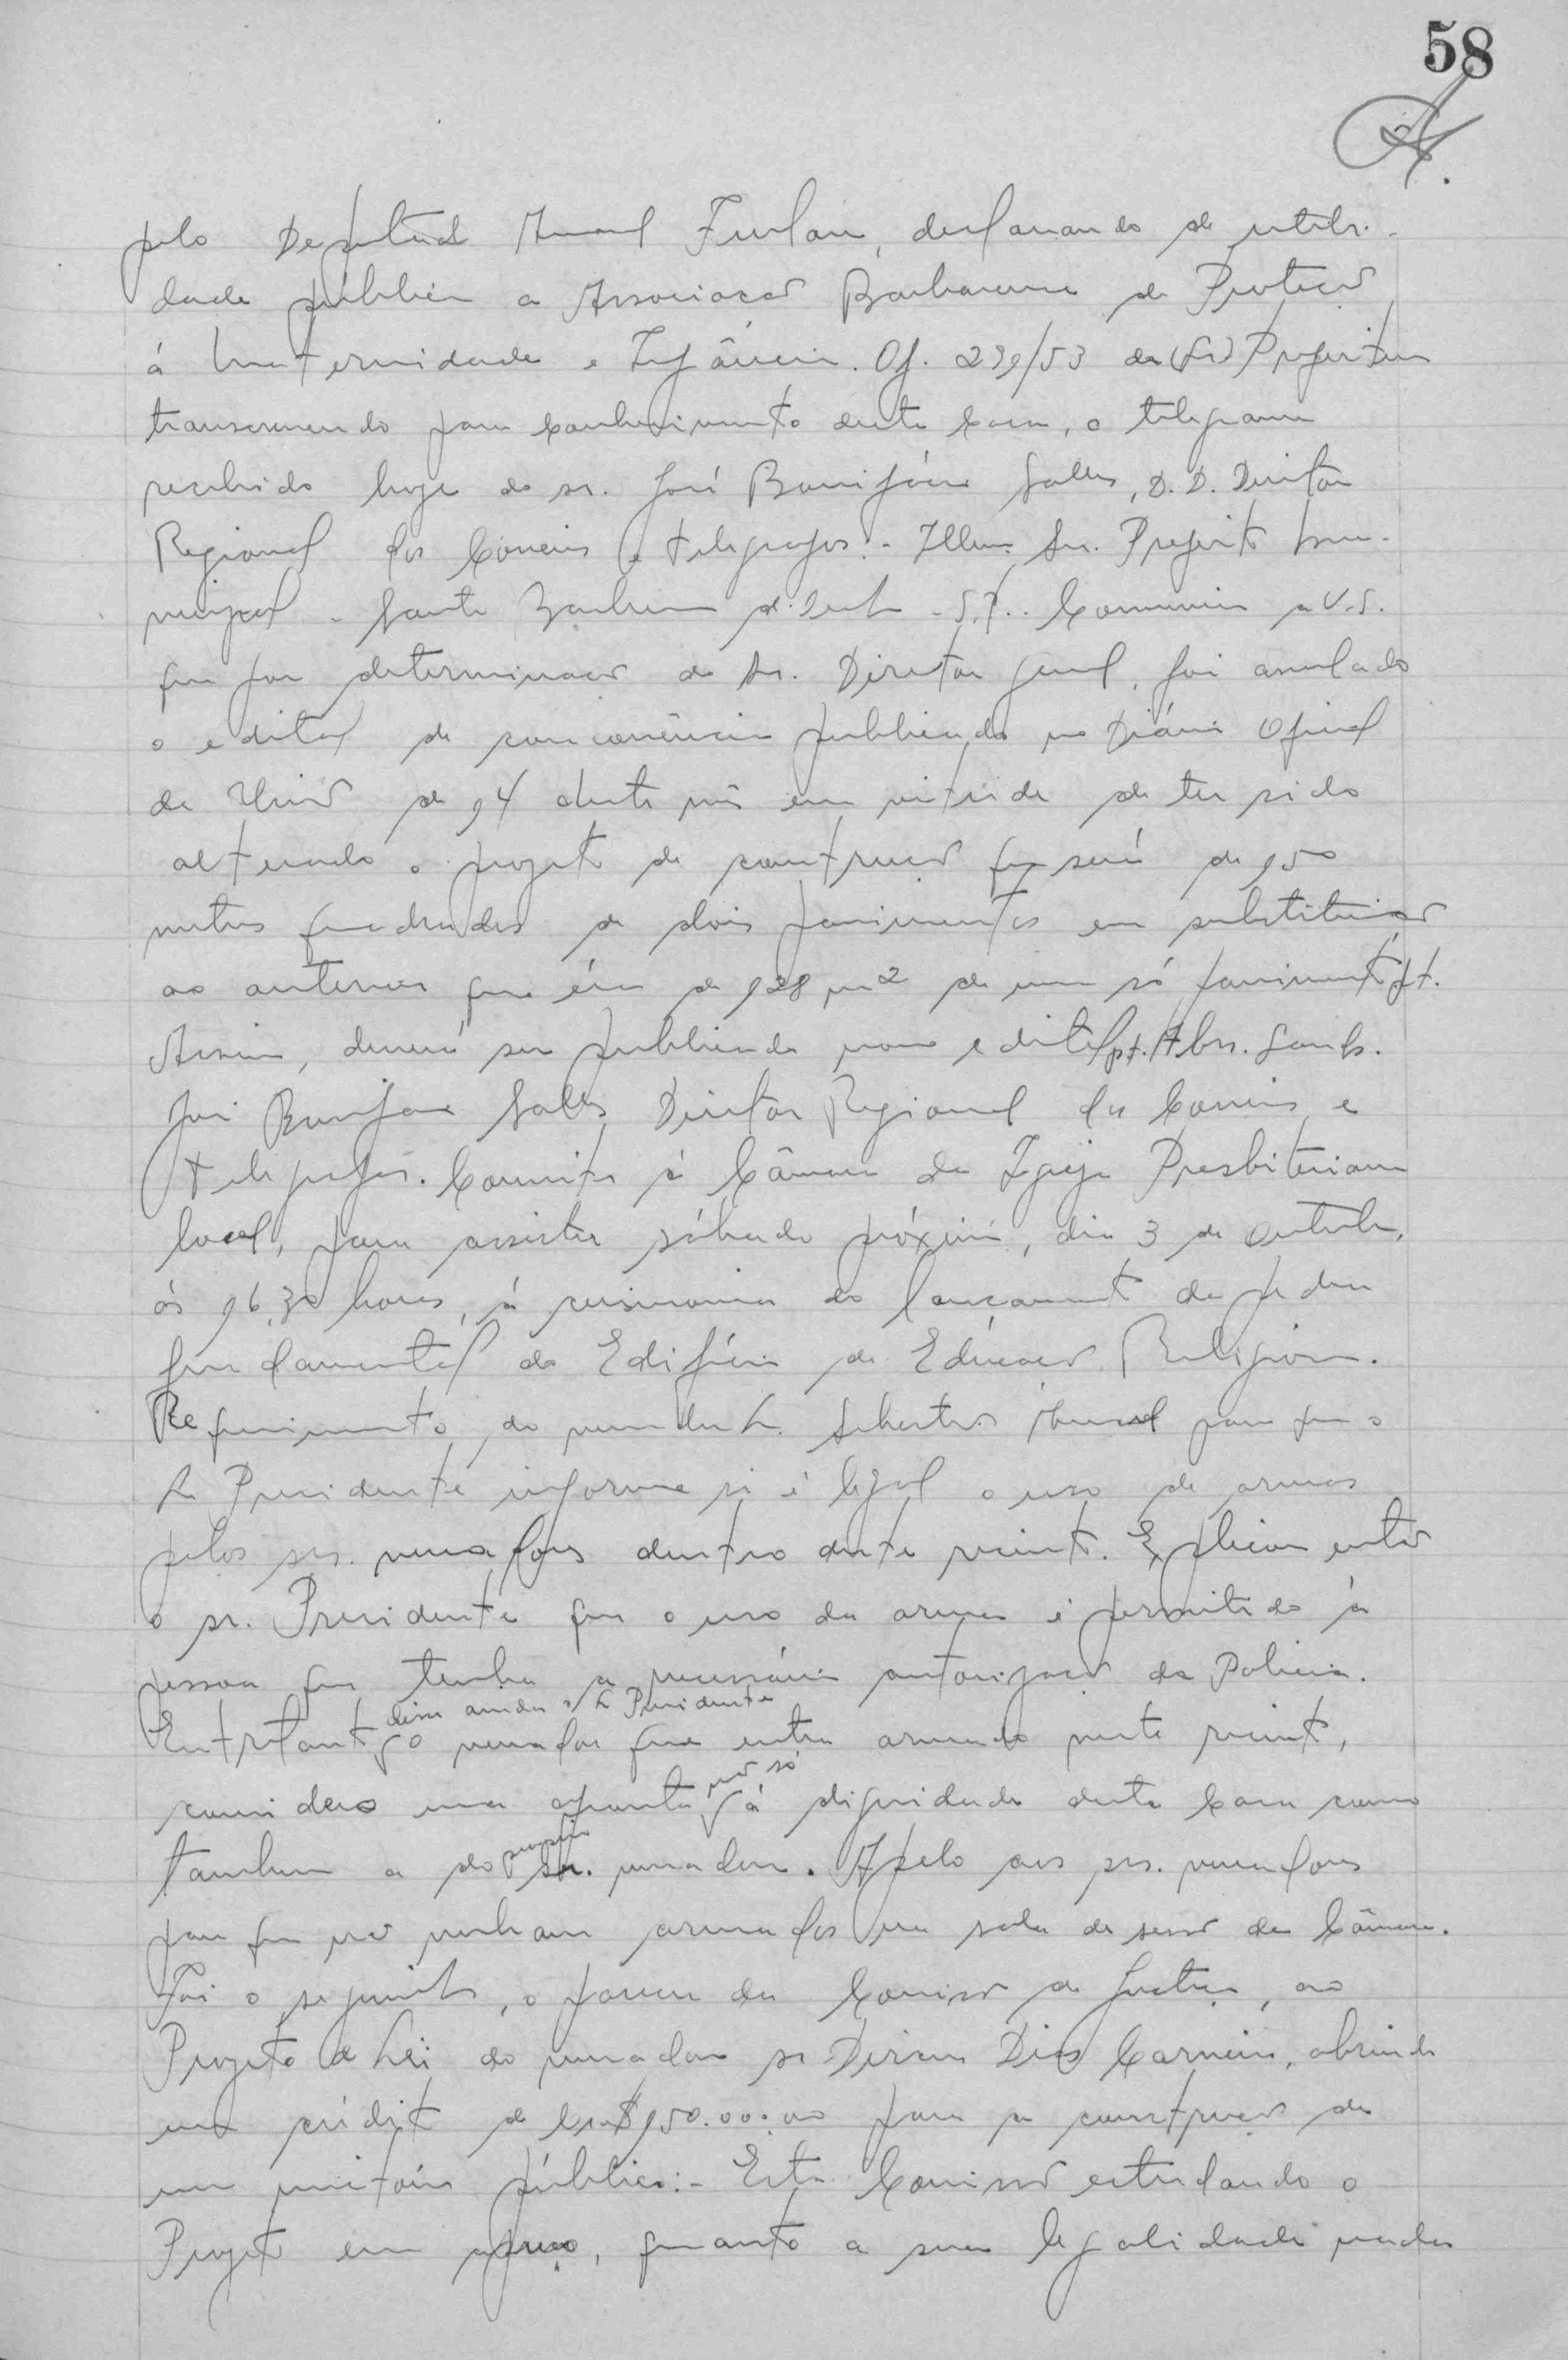 58
pelo Deputado Amaral Furlan, declarando de utili-
dade pública a Associação Barbarense de Proteção
á Maternidade e Infância. Of. 239/53 da Prefeitura
transcrevendo para conhecimento desta Casa, o telegrama
recebido hoje do sr. José Bonifácio Salles, D. D. Diretor
Regional dos Correios e telegrafos:- Illmo. Snr. Prefeito Mu-
nicipal - Santa Barbara d'Oeste - S.P. - Comunico a V.S.
que por determinação do Sr. Diretor Geral, foi anulado
o edital de concorrência publicado no Diário Oficial
da União de 14 deste mês em virtude de ter sido
alterado o projeto de construção que será de 150
metros quadrados de dois pavimentos em substituição
ao anterior que éra de 128 m2 de um só pavimento pt.
Assim, deverá ser publicado novo edital pt. Abrs. Sauds.
José Bonifacio Salles Diretor Regional dos Correios e
telegrafos. Convite á Câmara da Igreja Presbiteriana
local, para assistir sábado próximo, dia 3 de Outubro,
ás 16,30 horas, á cerimonia do lançamento da pedra
fundamental do Edifício de Educação Religiosa.
Requerimento do vereador Sr. para que o
Sr Presidente informe si é legal o uso de armas
pelos srs. vereadores dentro deste recinto. Explicou então
o sr. Presidente que o uso da arma é permitido á
pessoa que tenha a necessária autorização da Policia.
disse ainda o Sr Presidente
Entretanto o vereador que entra armado neste recinto,
não só
considero uma afronta á dignidade desta Casa como
proprio
tambem a do sr. vereador. Apelo aos srs. vereadores
para que não venham armados na sala de sessão da Câmara.
Foi o seguinte, o parecer da Comissão de Justiça, ao
Projeto de Lei do vereador sr Dirceu Dias Carneiro, abrindo
um crédito de Cr$150.000,00 para a construção de
um mictório público:- Esta Comissão estudando o
Projeto em apreço, quanto a sua legalidade nada